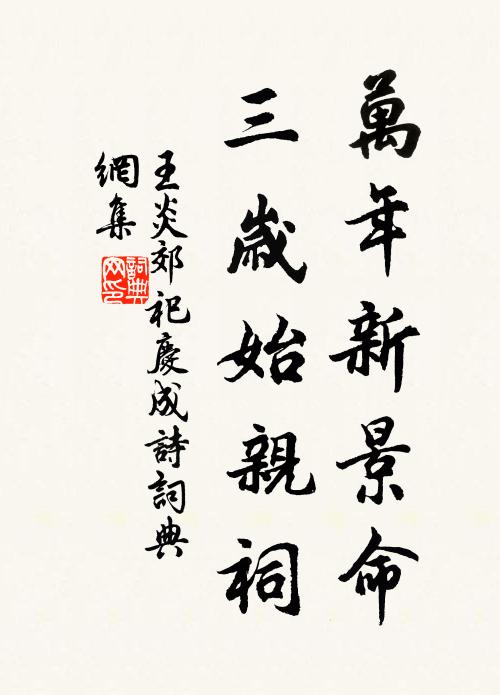 萬年新景命
三歲始親祠
王炎郊祀慶成詩詞典
網集
詞典網印